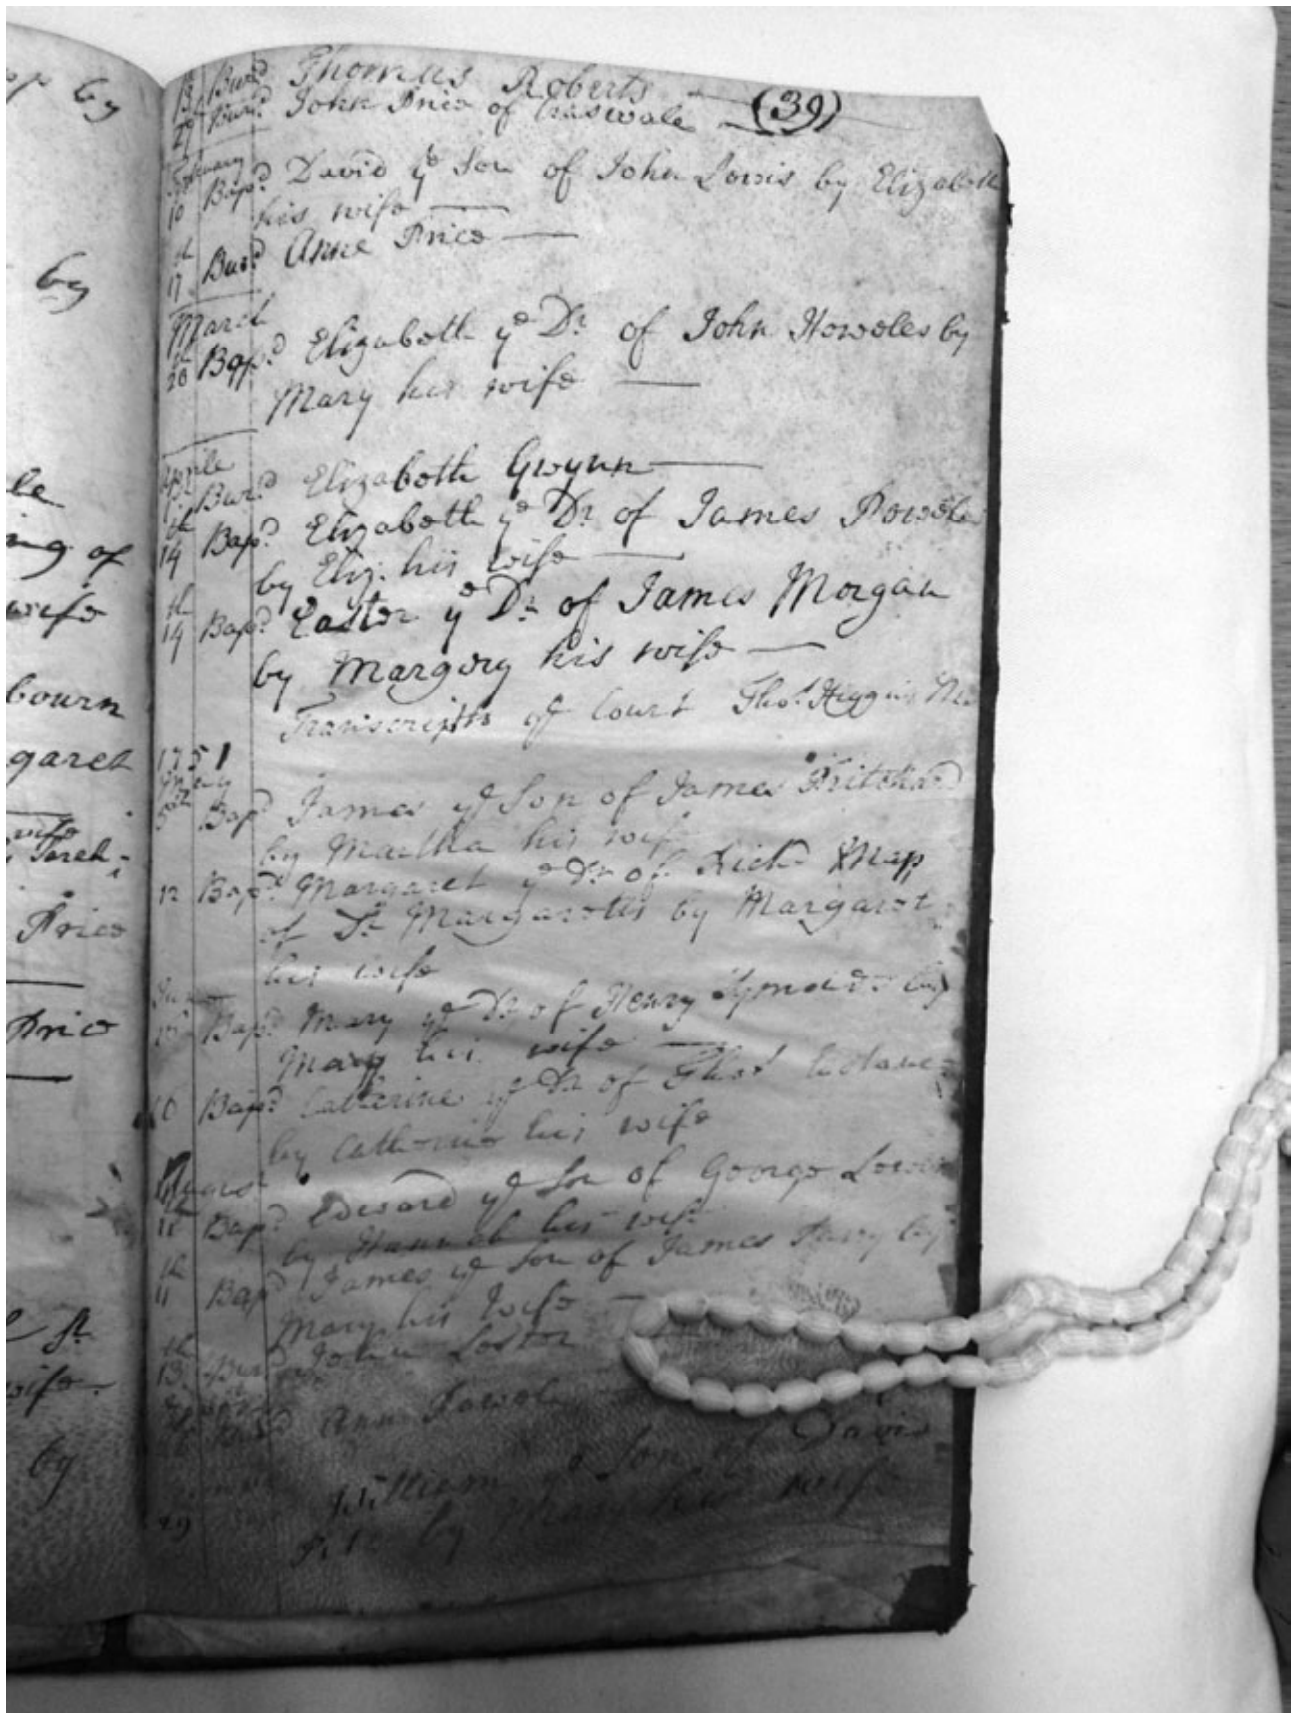 by
by
le
ing of
wife
bourn
garet
wife
Price
Price
St
wife
by
(39)
13 Burd Thomas Roberts
29 Burd John Price of Craswale
February
10 Bapd David ye Son of John Lewis by Elizabeth
his wife
th
17 Burd Anne Price
March
th
20 Bapd Elizabeth ye Dr of John Howeles by
Mary his wife
Aprile
Burd Elizabeth Gwynn
th
14 Bapd Elizabeth ye Dr of James Powele
by Eliz. his wife
th
14 Bapd Easter ye Dr of James Morgan
by Margery his wife
Transcripts of Court Thos. Higgins
1751
Bapd James ye Son of James Pritchard
by Martha his wife
12 Bapd Margaret ye Dr of Richd Map
of St Margaretts by Margaret
his wife
Bapd Mary ye Dr of Henry by
Mary his wife
Bapd Catherine ye Dr of Thos
by Catherine his wife
August
th
11 Bapd Edward ye Son of George Lewis
by Hannah his wife
th
11 Bapd James ye Son of James Parry by
Mary his wife
th
13 Burd John Lester
Ann Powel
William ye Son of David
29 by Mary his wife